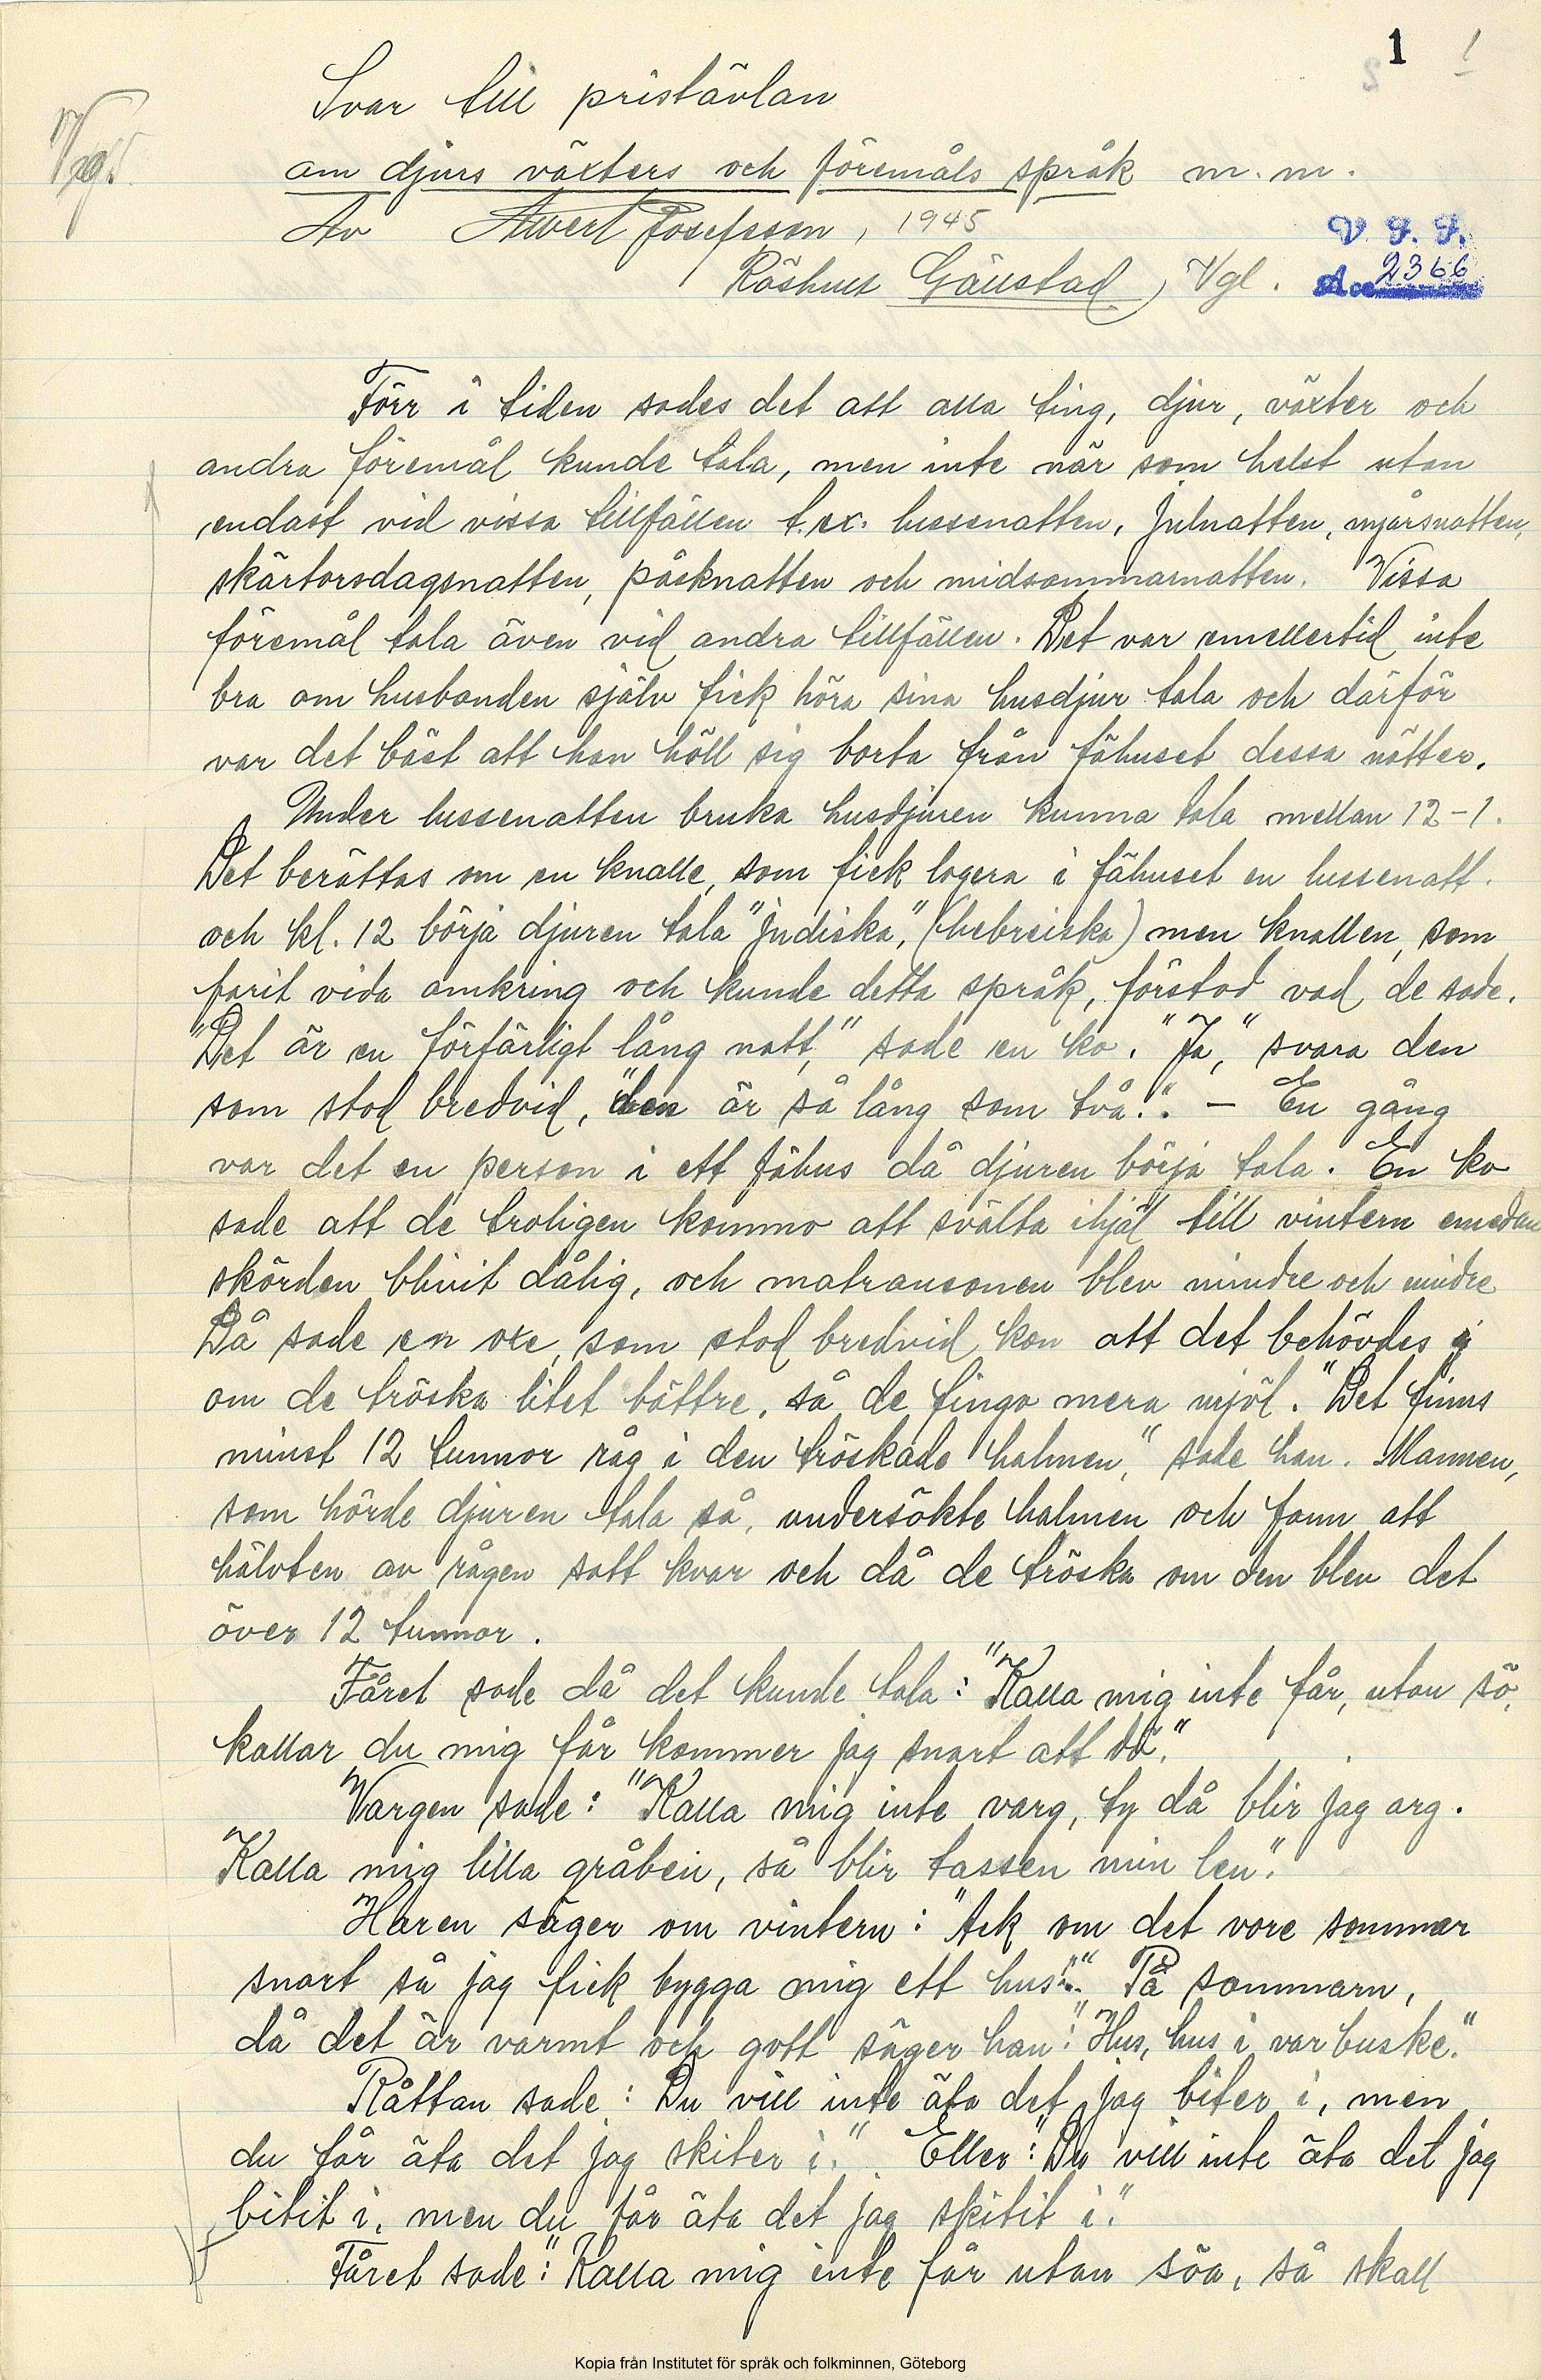 1
Svar till pristävlan
om djurs växters och föremåls språk m.m.
Av Alvert Josefsson, 1945
V. F. F.
Röshult Gällstad, Vgl.
Acc 2366
Förr i tiden sades det att alla ting, djur, växter och
andra föremål kunde tala, men inte när som helst utan
endast vid vissa tillfällen t.ex. lussenatten, julnatten, nyårsnatten,
skärtorsdagsnatten, påsknatten och midsommarnatten. Vissa
föremål tala även vid andra tillfällen. Det var emellertid inte
bra om husbonden själv fick höra sina husdjur tala och därför
var det bäst att han höll sig borta från fähuset dessa nätter.
Under lussenatten bruka husdjuren kunna tala mellan 12-1.
Det berättas om en knalle, som fick logera i fähuset en lussenatt.
och kl. 12 börja djuren tala "judiska", (hebreiska) men knallen, som
farit vida omkring och kunde detta språk, förstod vad de sade.
"Det är en förfärligt lång natt," sade en ko. "Ja," svara den
som stod bredvid, "den är så lång som två." – En gång
var det en person i ett fähus då djuren börja tala. En ko
sade att de troligen kommo att svälta ihjäl till vintern emedan
skörden blivit dålig, och matransonen blev mindre och mindre
Då sade en oxe, som stod bredvid kon att det behövdes ej
om de tröska litet bättre, så de fingo mera mjöl. "Det finns
minst 12 tunnor råg i den tröskade halmen," sade han. Mannen,
som hörde djuren tala så, undersökte halmen och fann att
hälvten av rågen satt kvar och då de tröska om den blev det
över 12 tunnor.
Fåret sade då det kunde tala: "Kalla mig inte får, utan sö,
kallar du mig får kommer jag snart att dö."
Vargen sade: "Kalla mig inte varg, ty då blir jag arg.
Kalla mig lilla gråbein, så blir tassen min len."
Haren säger om vintern: "Ack om det vore sommar
snart så jag fick bygga mig ett hus!" På sommarn,
då det är varmt och gott säger han: "Hus, hus i var buske."
Råttan sade: Du vill inte äta det jag biter i, men
du får äta det jag skiter i." Eller: "Du vill inte äta det jag
bitit i, men du får äta det jag skitit i."
Fåret sade: "Kalla mig inte får utan söa, så skall
Kopia från Institutet för språk och folkminnen, Göteborg